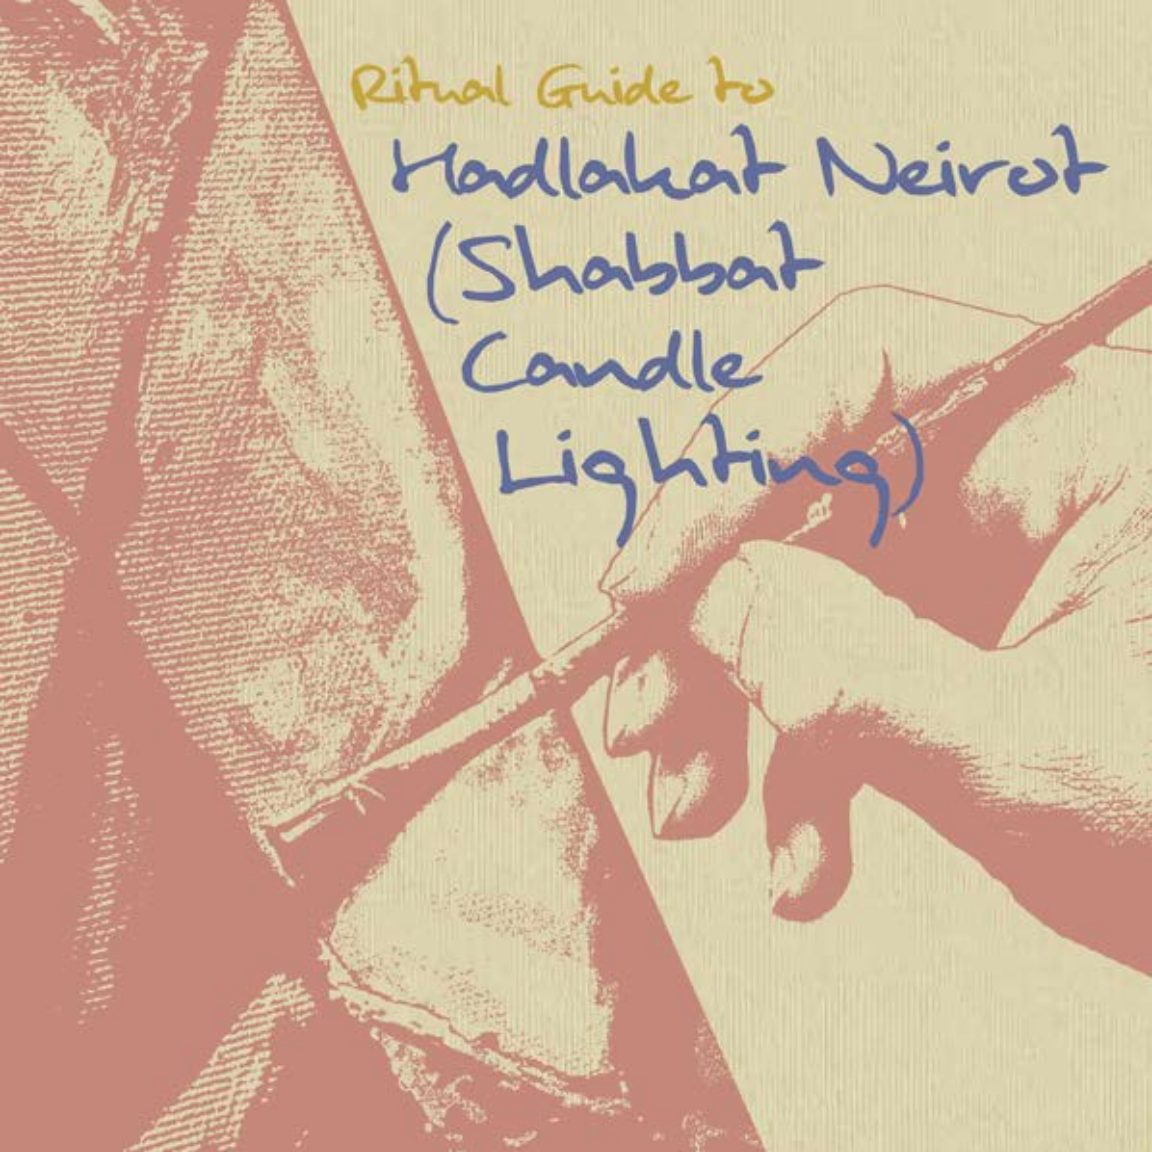 Ritual Guide to
Hadlakat Neirot
(Shabbat
Candle
Lighting)